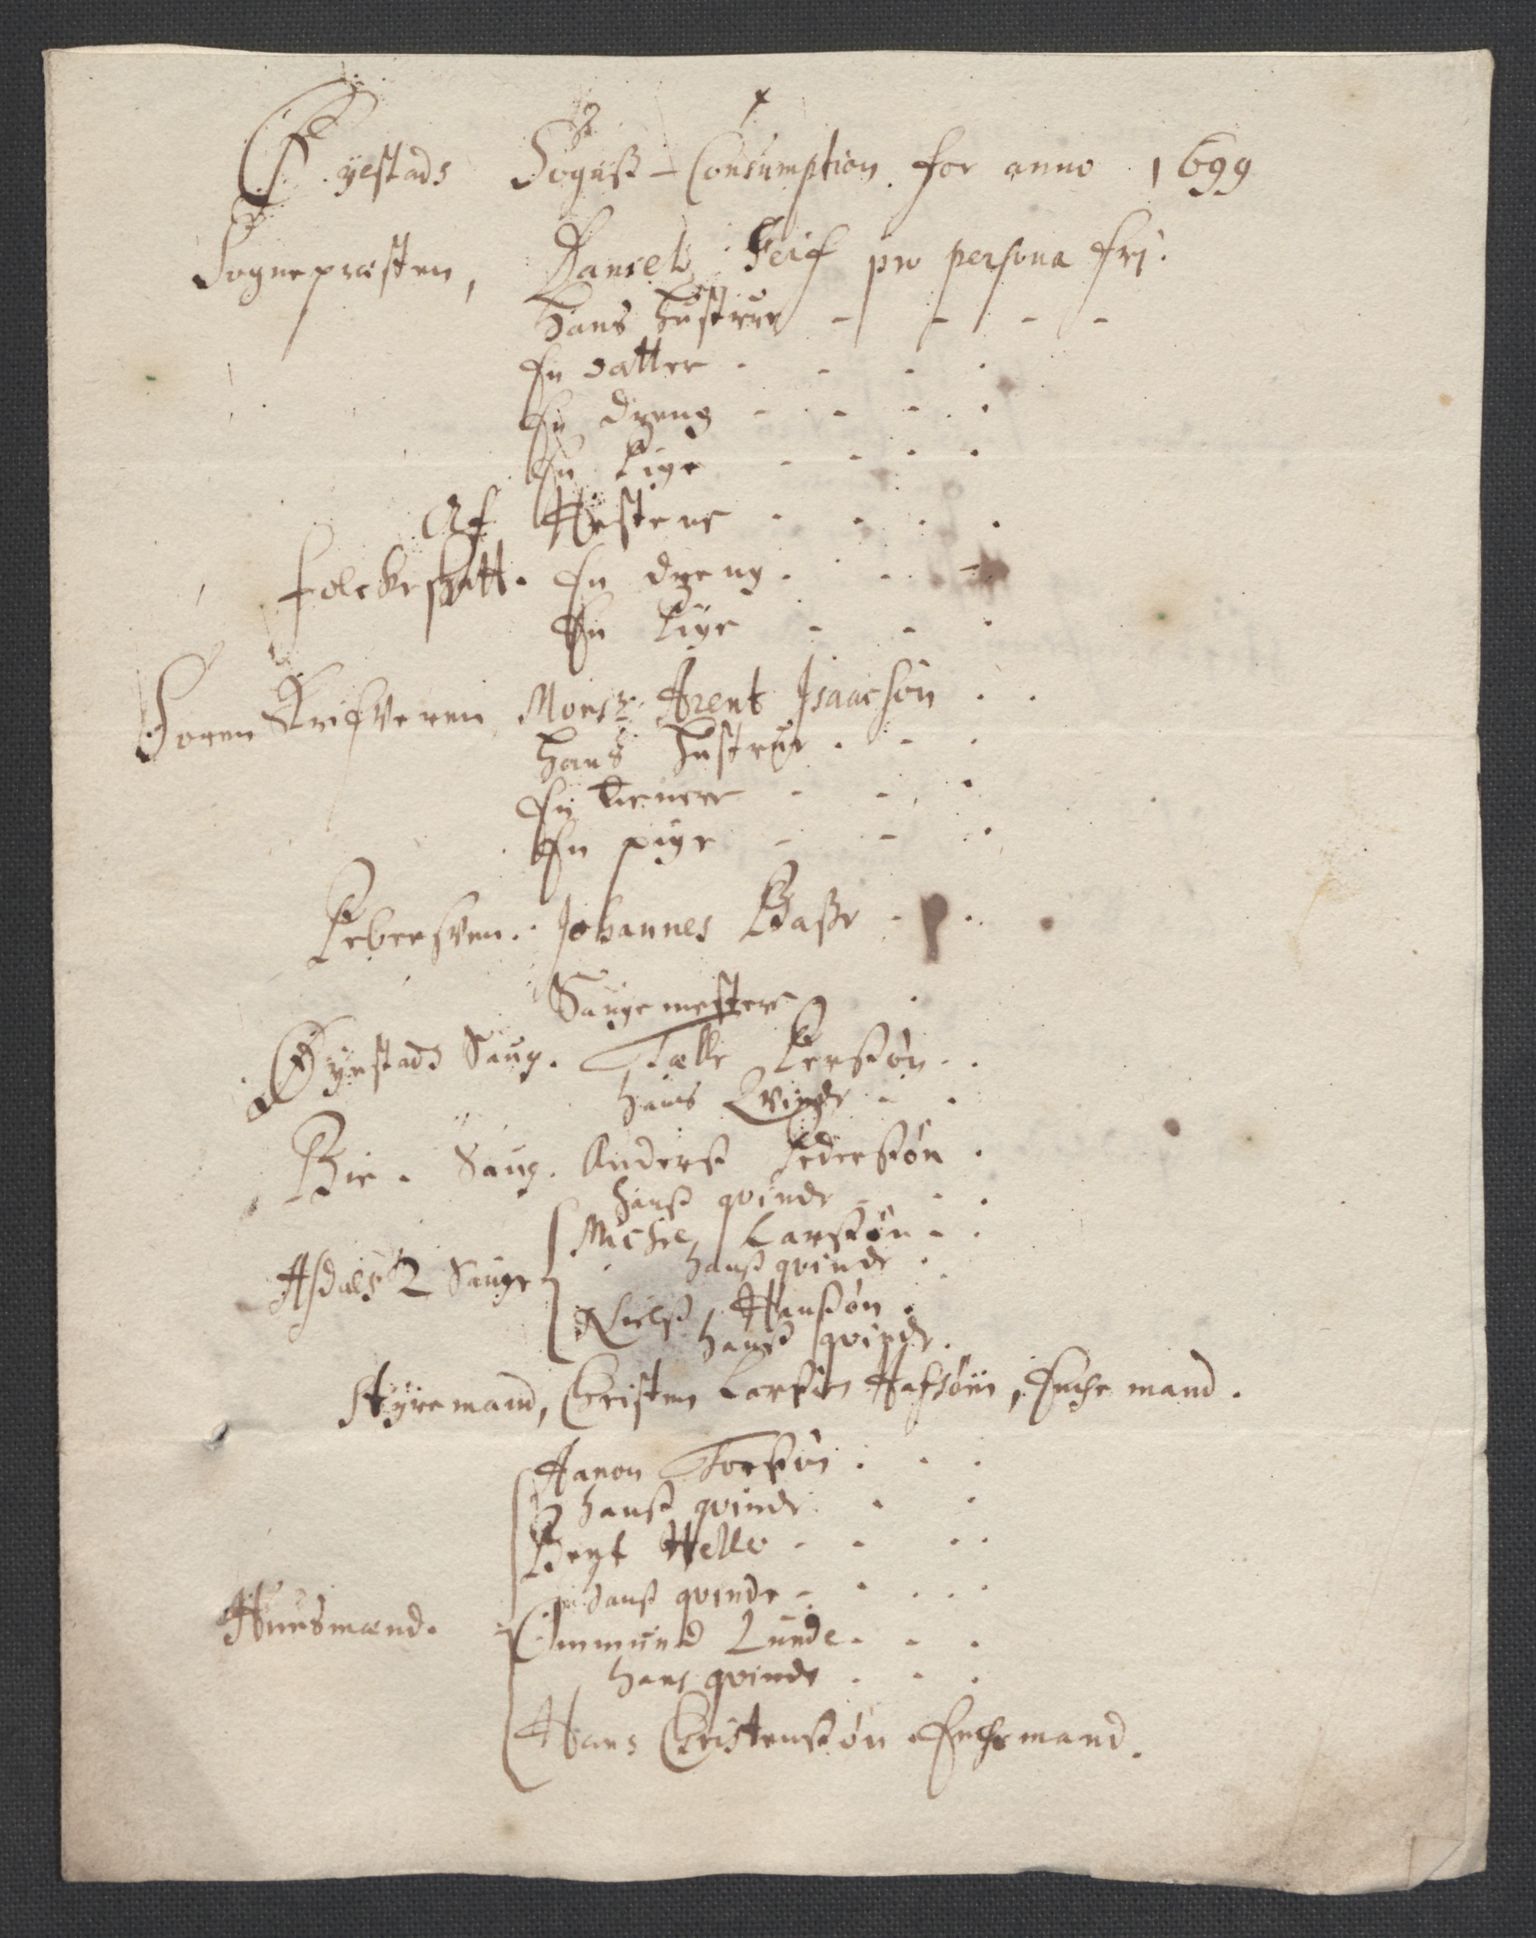 Øyestads Sogns - Consumption for anno 1699
Sognepræsten, Daniel pro persona fri.
hans hustrue - - - -
En datter - - - -
En dreng - - - -
En Pige - - - -
Af Hestene - - - -
folckeskatt. En dreng - - -
En Pige - - -
Sorenskrifveren Monsr: Arent Isaacsøn - -
hans hustrue - - -
En tienere - - -
En pige - - -
Pebersven. Johannes Basse - -
Saugemestere
Øyestads Saug. Tælle Persøn - -
hans Qvinde - -
Bie - Saug. Anderss Pedersøn -
hanss qvinde - -
Asdals 2 Sauge Michel Larssøn - -
hanss qvinde -
Nielss Hanssøn -
hanss qvinde -
Styremand, Christen Larssøn Hafsøen, Enche mand.
Aanon Torssøn - - -
hanss qvinde - -
Bent Helle - - -
hanss qvinde - - -
Huusmænd. Ommund Lunde - - -
hans qvinde - - -
Hans Christenssøn Enchemand.